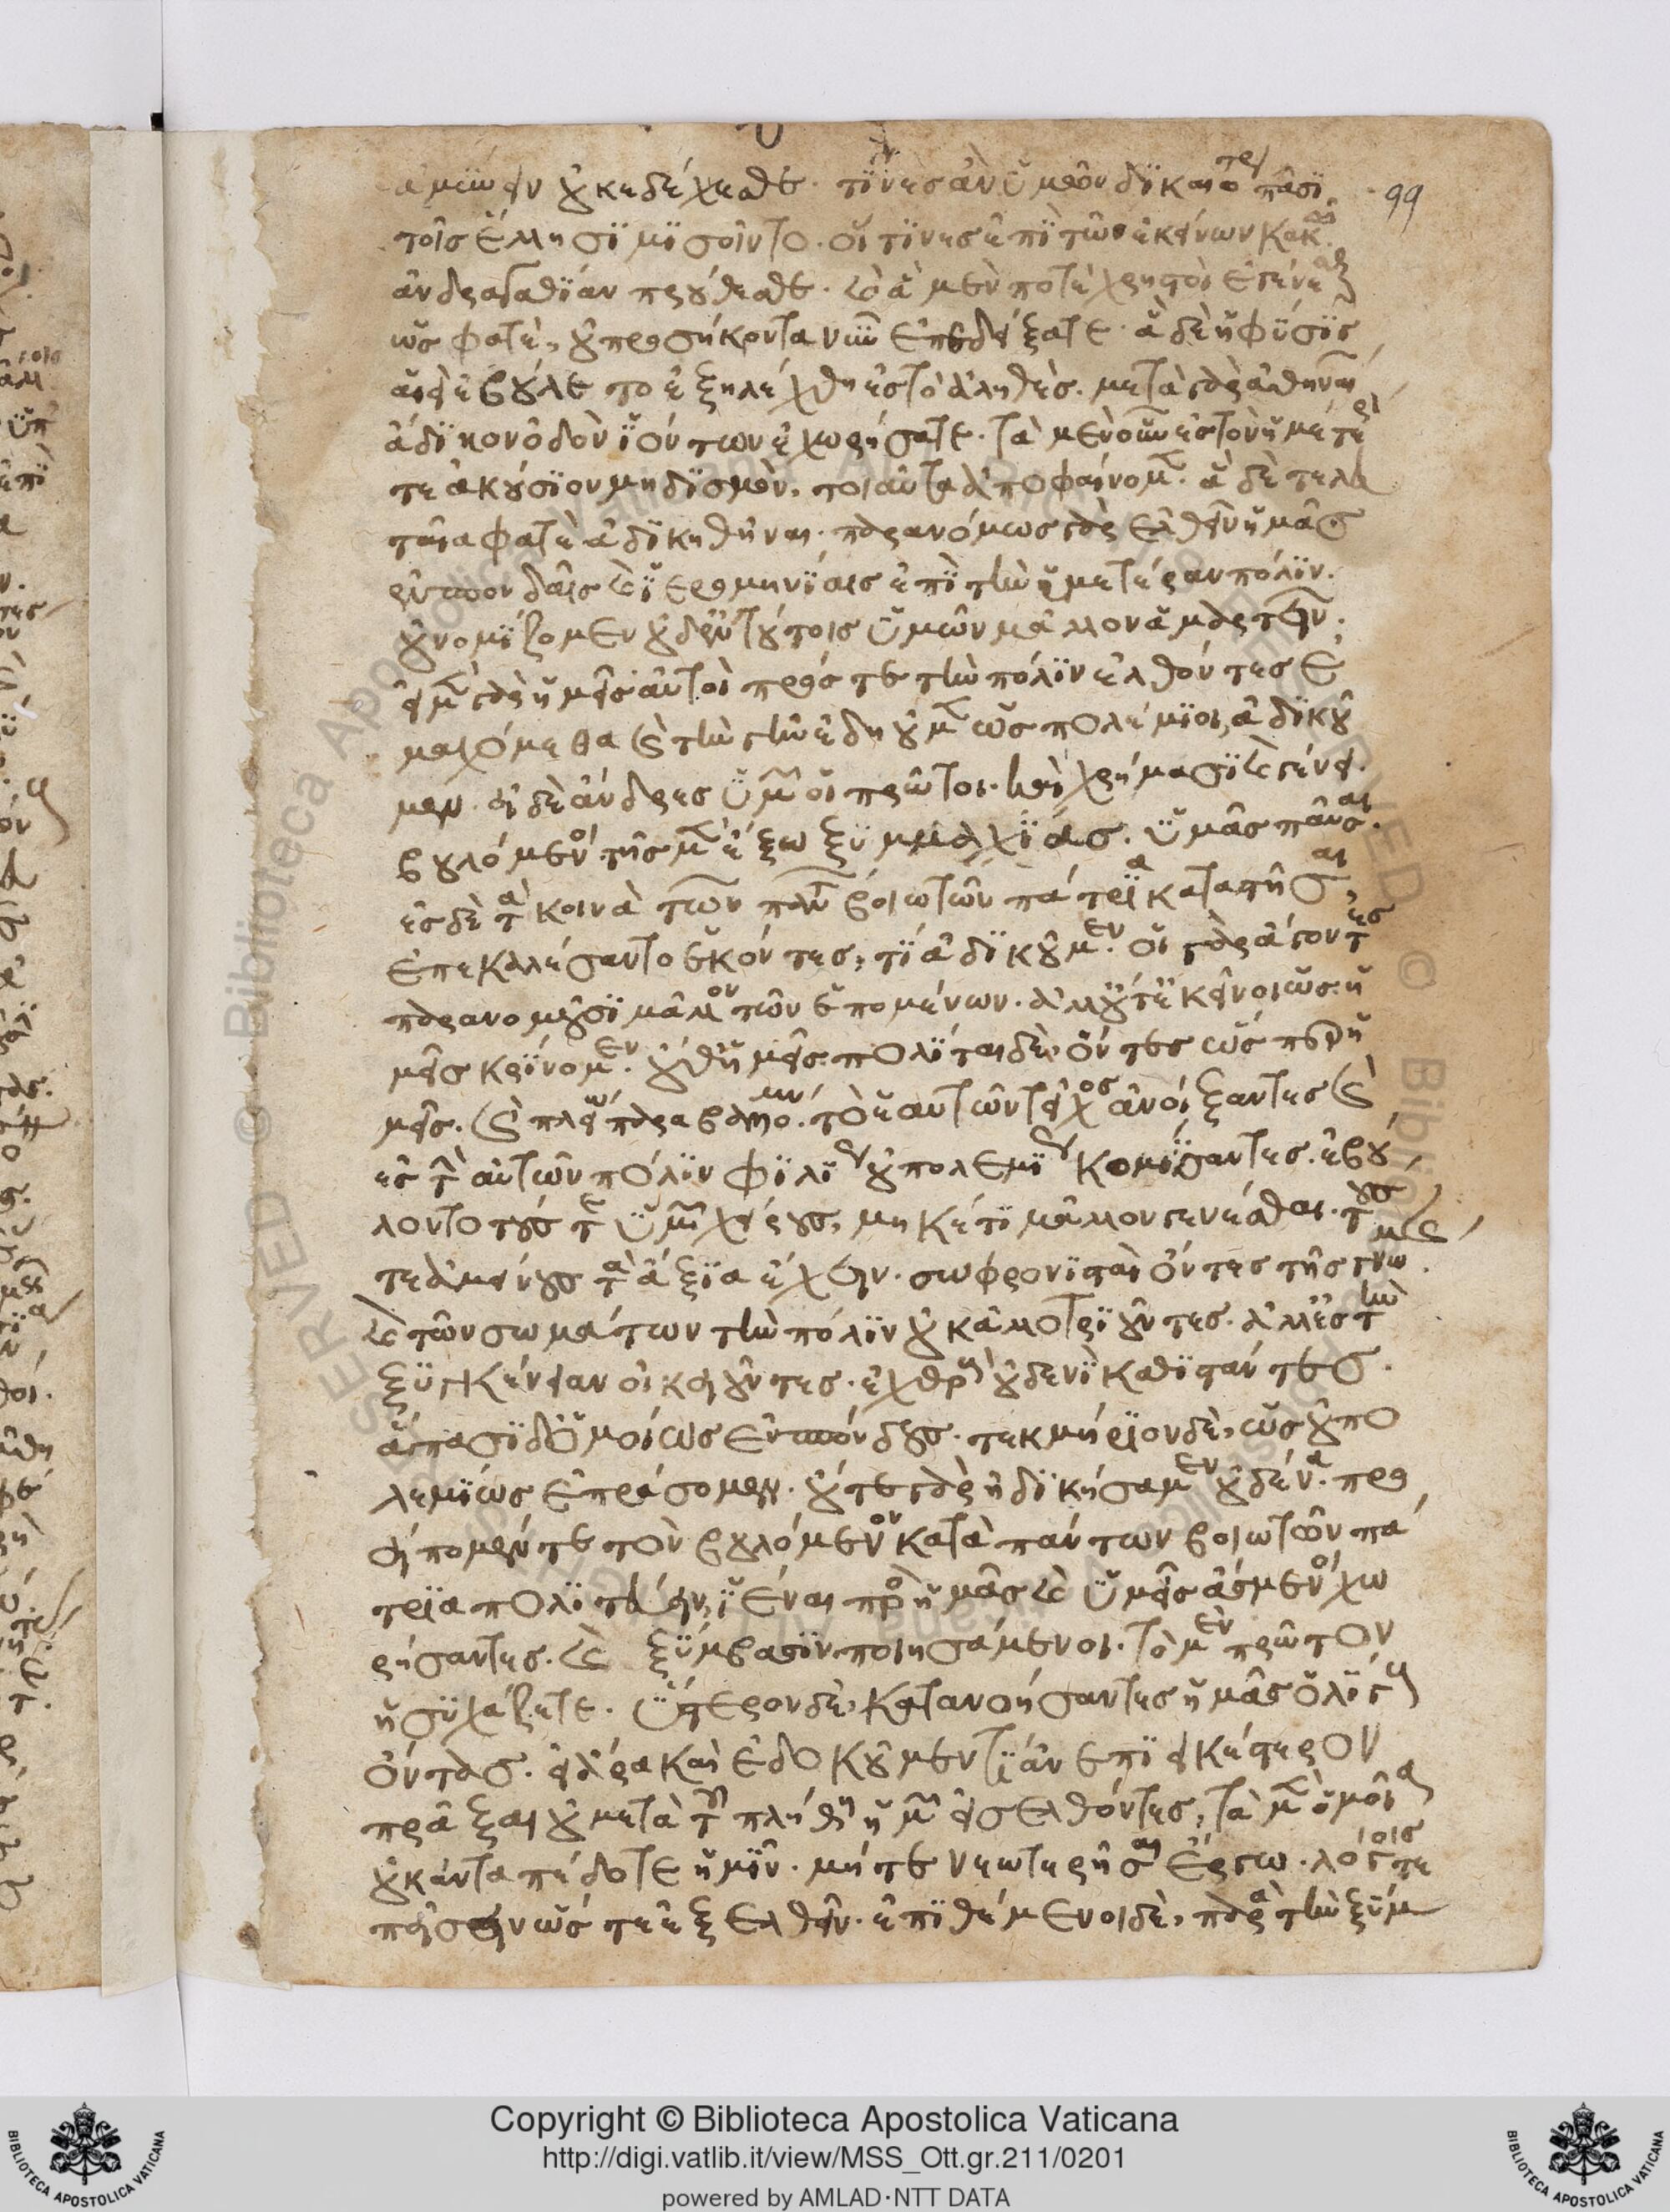 ἀμύνειν οὐκ ἐδέχεσθε. τίνες ἂν οὖν ὑμῶν δικαιότερον πᾶσι 99
τοῖς ἕλλησι μισοῖντο. οἵτινες ἐπὶ τῶ ἐκείνων κακῶ
ἀνδραγαθίαν προύθεσθε. καὶ ἃ μὲν ποτὲ χρηστοὶ ἐγένεσθε
ὥς φατὲ, οὐ προσήκοντα νῦν ἐπεδείξατε. ἃ δὲ ἡ φύσις
αἰεὶ ἐβούλετο ἐξηλέχθη ἐς τὸ ἀληθές. μετὰ γὰρ ἀθηναίων
ἄδικον ὁδὸν ἰόντων ἐχωρήσατε. τὰ μὲν οὖν ἐς τὸν ἡμέτερόν
τε ἀκούσιον μηδισμὸν, τοιαῦτα ἀποφαίνομεν. ἃ δὲ τελευ
ταῖα φατὲ ἀδικηθῆναι. παρανόμως γὰρ ἐλθεῖν ἡμᾶς
ἐν σπονδαῖς καὶ ἱερομηνίαις ἐπὶ τὴν ὑμετέραν πόλιν.
οὐ νομίζομεν οὐδ' ἐν τούτοις ὑμῶν μᾶλλον ἁμαρτεῖν.
εἰ μὲν γὰρ ἡμεῖς αὐτοὶ πρός τε τὴν πόλιν ἐλθόντες ἐ
μαχόμεθα καὶ τὴν γῆν ἐδηοῦμεν ὡς πολέμιοι, ἀδικοῦ
μεν. εἰ δὲ ἄνδρες ὑμῶν οἱ πρῶτοι. καὶ χρήμασι καὶ γένει.
βουλόμενοι τῆς μὲν ἔξω ξυμμαχίας. ὑμᾶς παῦσαι.
ἐς δὲ τὰ κοινὰ τῶν πάντων βοιωτῶν πάτρια καταστῆσαι,
ἐπεκαλέσαντο ἑκόντες, τί ἀδικοῦμεν. οἱ γὰρ ἄγοντες
παρανομοῦσι μᾶλλον τῶν ἑπομένων. ἀλλ' οὔτ' ἐκεῖνοι ὡς ἡ
μεῖς κρίνομεν. οὔθ' ἡμεῖς. πολῖται δὲ, ὄντες ὥσπερ ὑ
μεῖς. καὶ πλείω παραβαλλόμενοι. τὸ ἑαυτῶν τεῖχος ἀνοίξαντες καὶ
ἐς τὴν αὑτῶν πόλιν φιλίους οὐ πολεμίους κομίσαντες. ἐβού
λοντο τούς τε ὑμῶν χείρους, μηκέτι μᾶλλον γενέσθαι. τούς
τε ἀμείνους τὰ ἄξια ἔχειν. σωφρονισταὶ ὄντες τῆς γνώμης
καὶ τῶν σωμάτων τὴν πόλιν οὐκ ἀλλοτριοῦντες. ἀλλ' ἐς τὴν
ξυγγένειαν οἰκειοῦντες. ἐχθροὺς οὐδενὶ καθιστάντες.
ἅπασι δ' ὁμοίως ἐνσπόνδους. τεκμήριον δὲ, ὡς οὐ πο
λεμίως ἐπράσομεν. οὔτε γὰρ ἠδικήσαμεν οὐδένα. προ
είπομέν τε τὸν βουλόμενον κατὰ πάντων βοιωτῶν πά
τρια πολιτεύειν, ἰέναι πρὸς ἡμᾶς καὶ ὑμεῖς ἄσμενοι χω
ρήσαντες. καὶ ξύμβασιν ποιησάμενοι. τὸ μὲν πρῶτον
ἡσυχάζετε. ὕστερον δὲ, κατανοήσαντες ἡμᾶς ὀλίγους
ὄντας. εἰ ἄρα καὶ ἐδοκοῦμεν τι ἀνεπιεικέστερον
πρᾶξαι οὐ μετὰ τοῦ πλήθους ὑμῶν ἐσελθόντες, τὰ μὲν ὁμοῖα
οὐκ ἀνταπέδοτε ἡμῖν. μήτε νεωτερῆσαι ἔργω. λόγοις τε
πείσειν ὥστε ἐξελθεῖν. ἐπιθέμενοι δὲ, παρὰ τὴν ξύμ
Copyright © Biblioteca Apostolica Vaticana
http://digi.vatlib.it/view/MSS_Ott.gr.211/0201
powered by AMLAD·NTT DATA